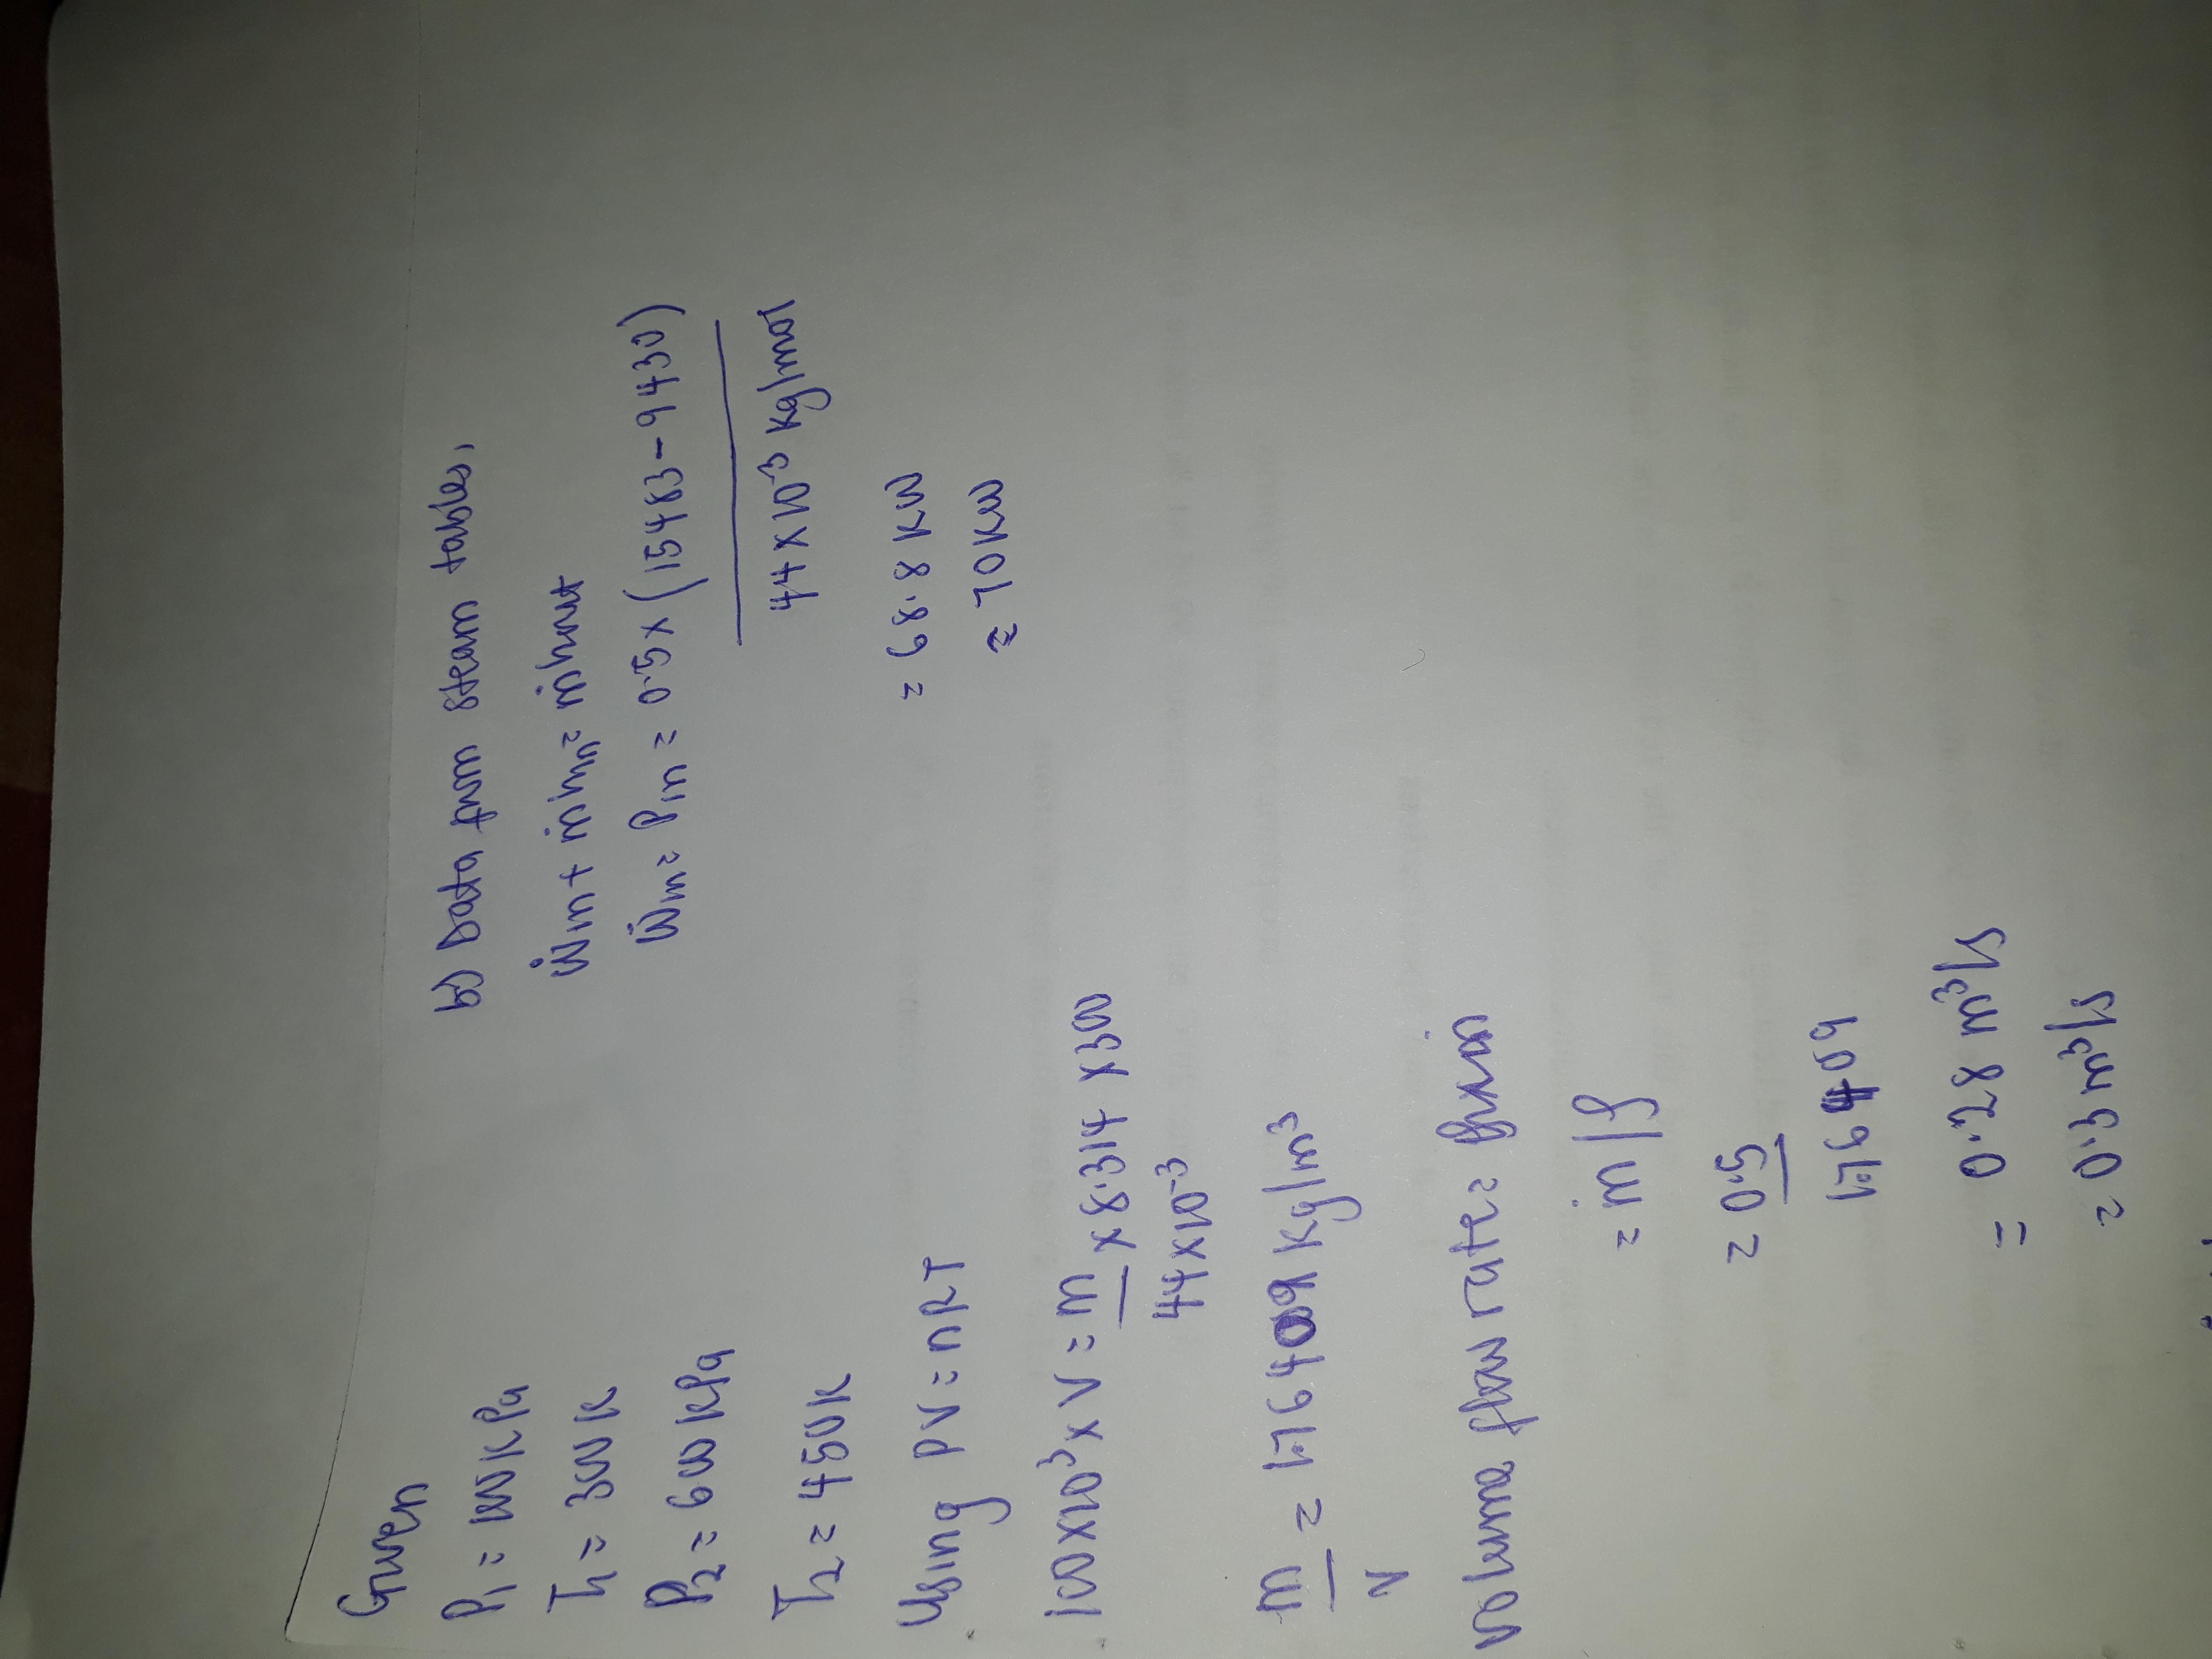 Given
P1 = 100 KPa
T1 = 300 K
P2 = 600 KPa
T2 = 450K
Using PV = nRT
100x10^3 x V = m/44x10^-3 x 8.314 x 300
m/V = 1.76409 kg/m^3
Volume flow rate =
= ṁ/ρ
= 0.5/1.76409
= 0.28 m^3/s
= 0.3 m^3/s
b) Data from steam tables,
Ẇin + ṁhin = ṁhout
Ẇin = Pin = 0.5 x (15483 - 9430)
44 x 10^-3 kg/mol
= 68.8 KW
≈ 70KW